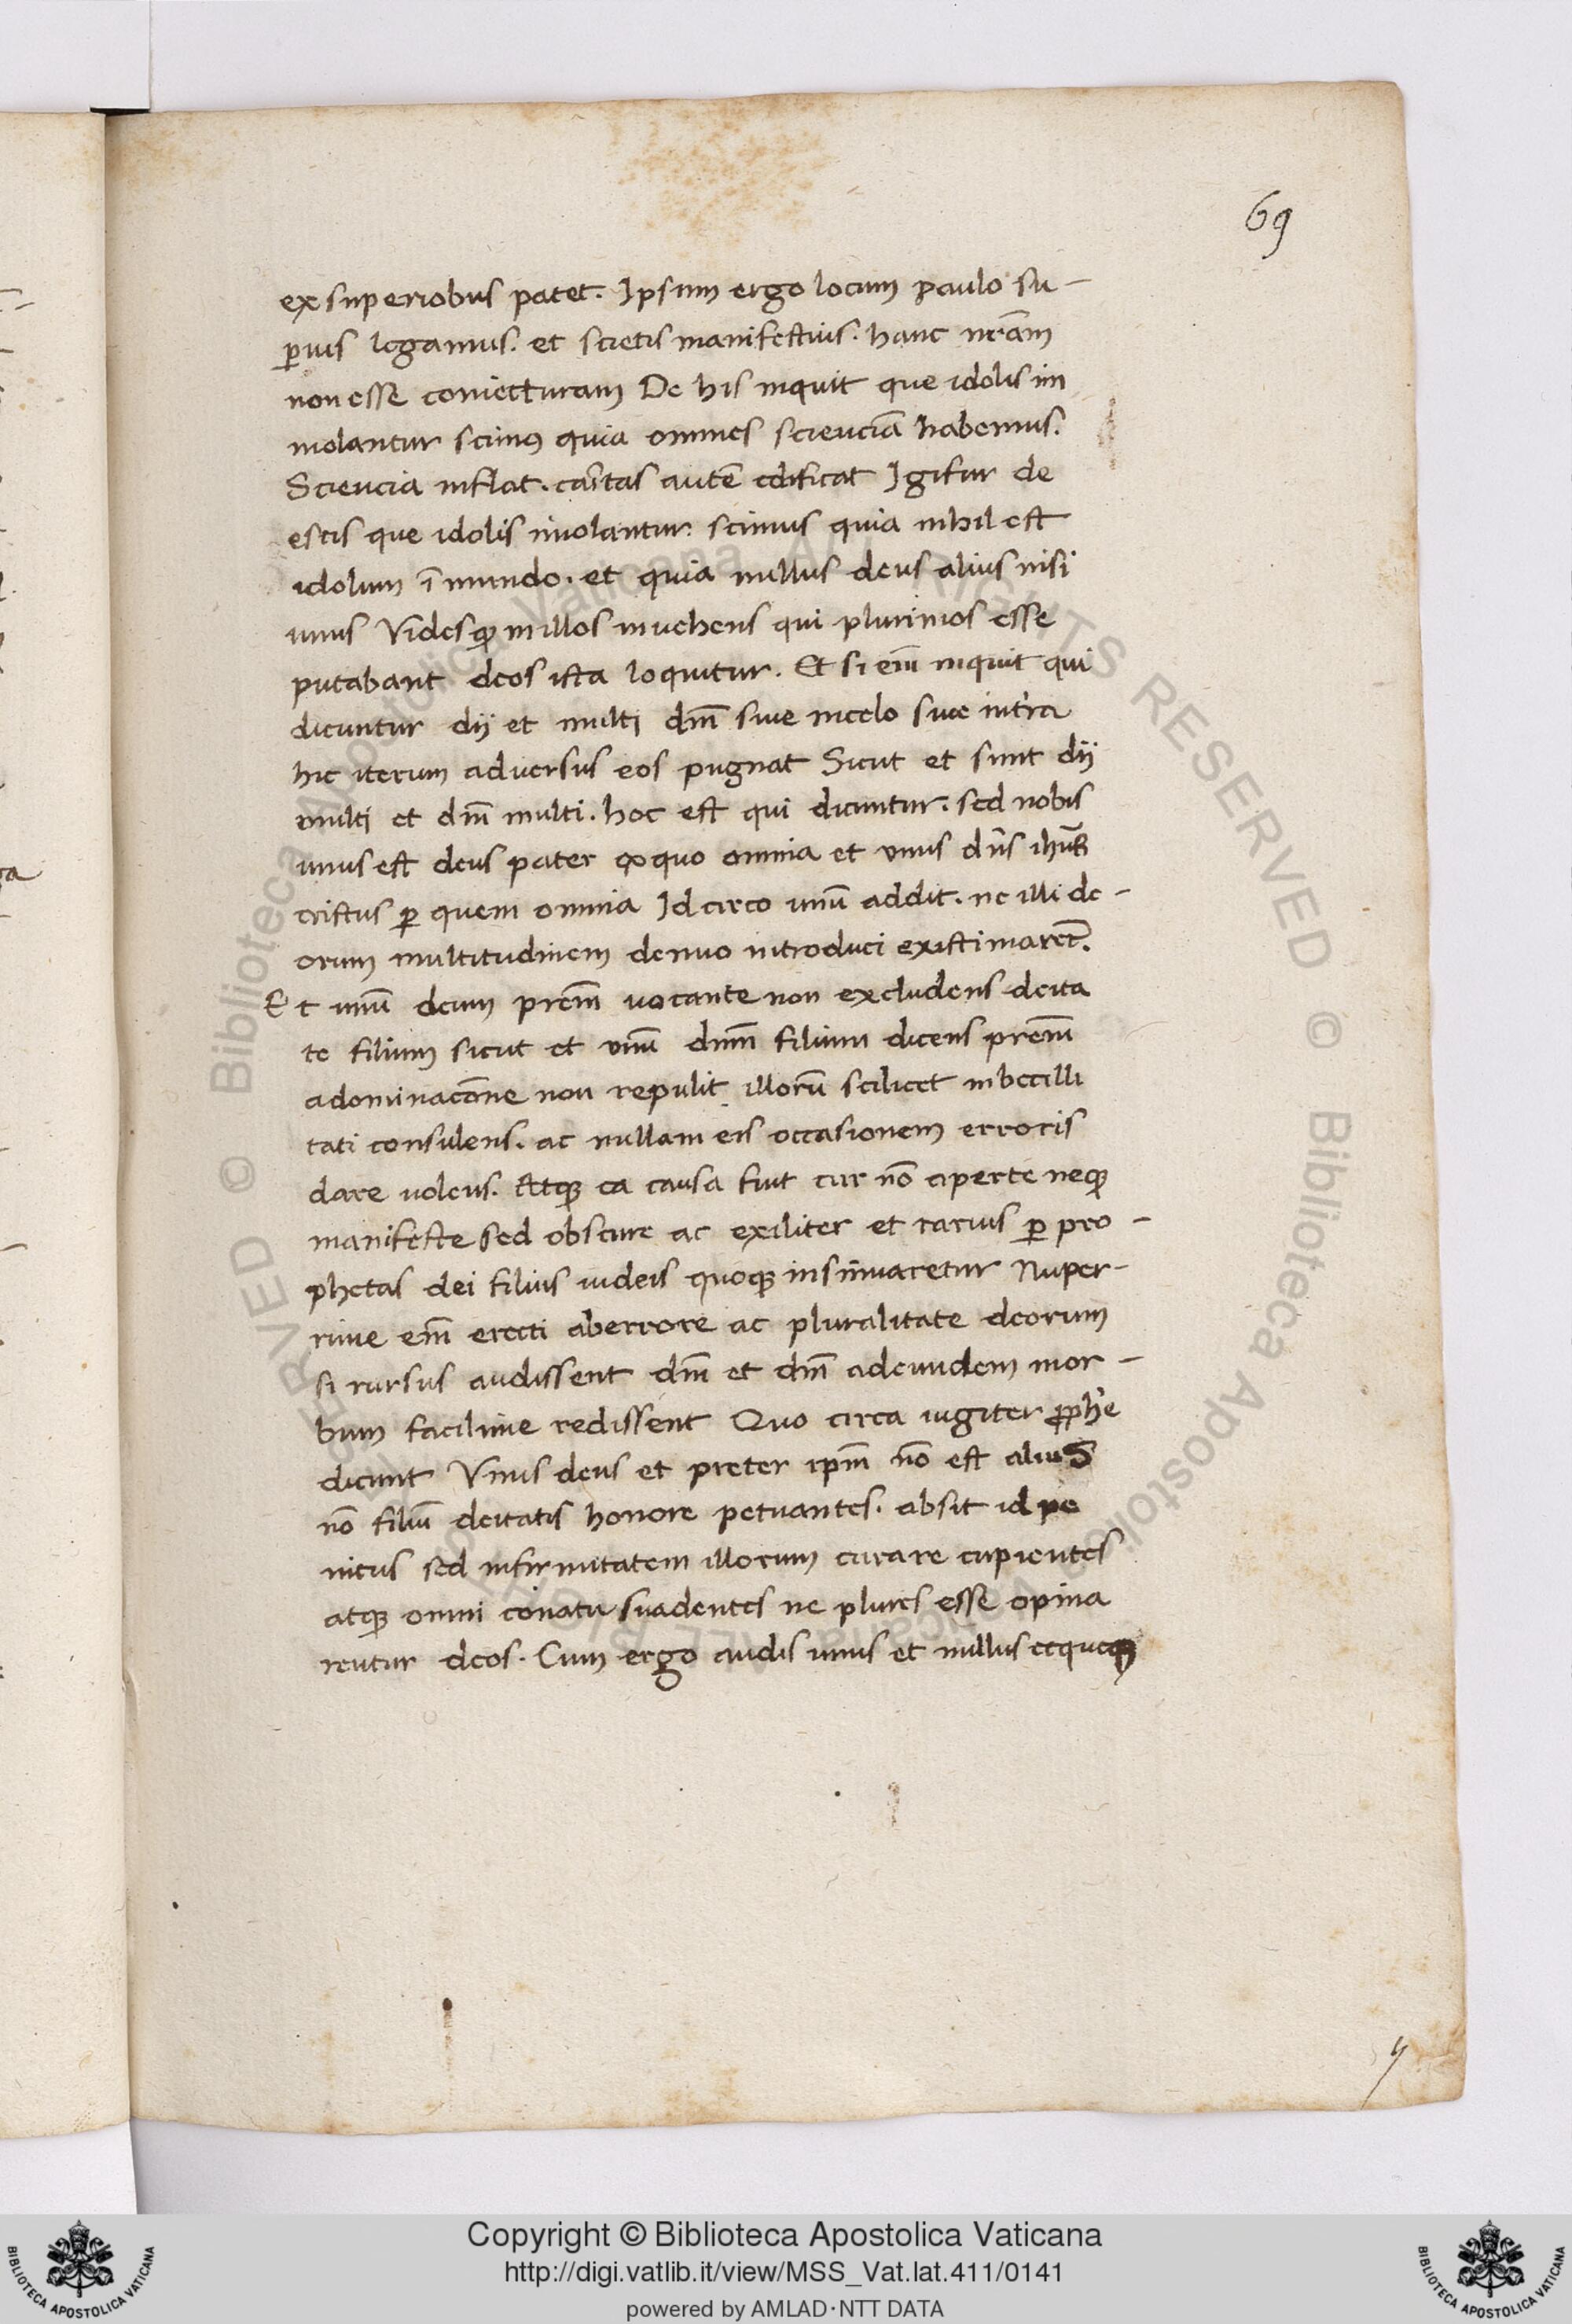 69
ex superiobus patet. Ipsum ergo locum paulo su-
p̱ius legamus. et scietis manifestius. hanc nr̃am
non esse coniectturam De his inquit que idolis im
molantur scimus quia omnes scienciã habemus.
Sciencia inflat. caritas autẽ edificat Igitur de
escis que idolis ĩmolantur. scimus quia nihil est
idolum ĩ mundo. et quia nullus deus alius nisi
unus Videsqꝫ in illos invehens qui plurimos esse
putabant deos ista loquitur. Et si em̃ inquit qui
dicuntur dij et multi dñi sive in celo sive in tr̃a
hic iterum adversus eos pugnat Sicut et sunt dij
multi et dñi multi. hoc est qui dicuntur. sed nobis
unus est deus pater ex quo omnia et vnus dñs ihũs
cristus ꝑ quem omnia Id circo unũ addit. ne illi de-
orum multitudinem denuo introduci existimarẽt.
Et unũ deum prẽm uocante non excludens deita
te filium sicut et vnũ dñm filium dicens prẽm
a dominacõne non repulit illorũ scilicet inbecilli
tati consulens. ac nullam eis occasionem erroris
dare uolens. Atqꝫ ea causa fuit cur nõ aperte neqꝫ
manifeste sed obscure ac exiliter et rarius ꝑ pro-
phetas dei filius iudeis quoqꝫ insinuaretur Nuper-
rime em̃ erecti ab errore ac pluralitate deorum
si rursus audissent dñi et dñi ad eundem mor-
bum facilime redissent Quo circa iugiter ꝓphe
dicunt Vnus deus et preter ipm̃ nõ est alius
nõ filiũ deitatis honore petuantes. absit id pe
nitus sed infirmitatem illorum curare cupientes
atqꝫ omni conatu suadentes ne plures esse opina
rentur deos. Cum ergo audis unus et nullus
Copyright © Biblioteca Apostolica Vaticana
http://digi.vatlib.it/view/MSS_Vat.lat.411/0141
powered by AMLAD·NTT DATA